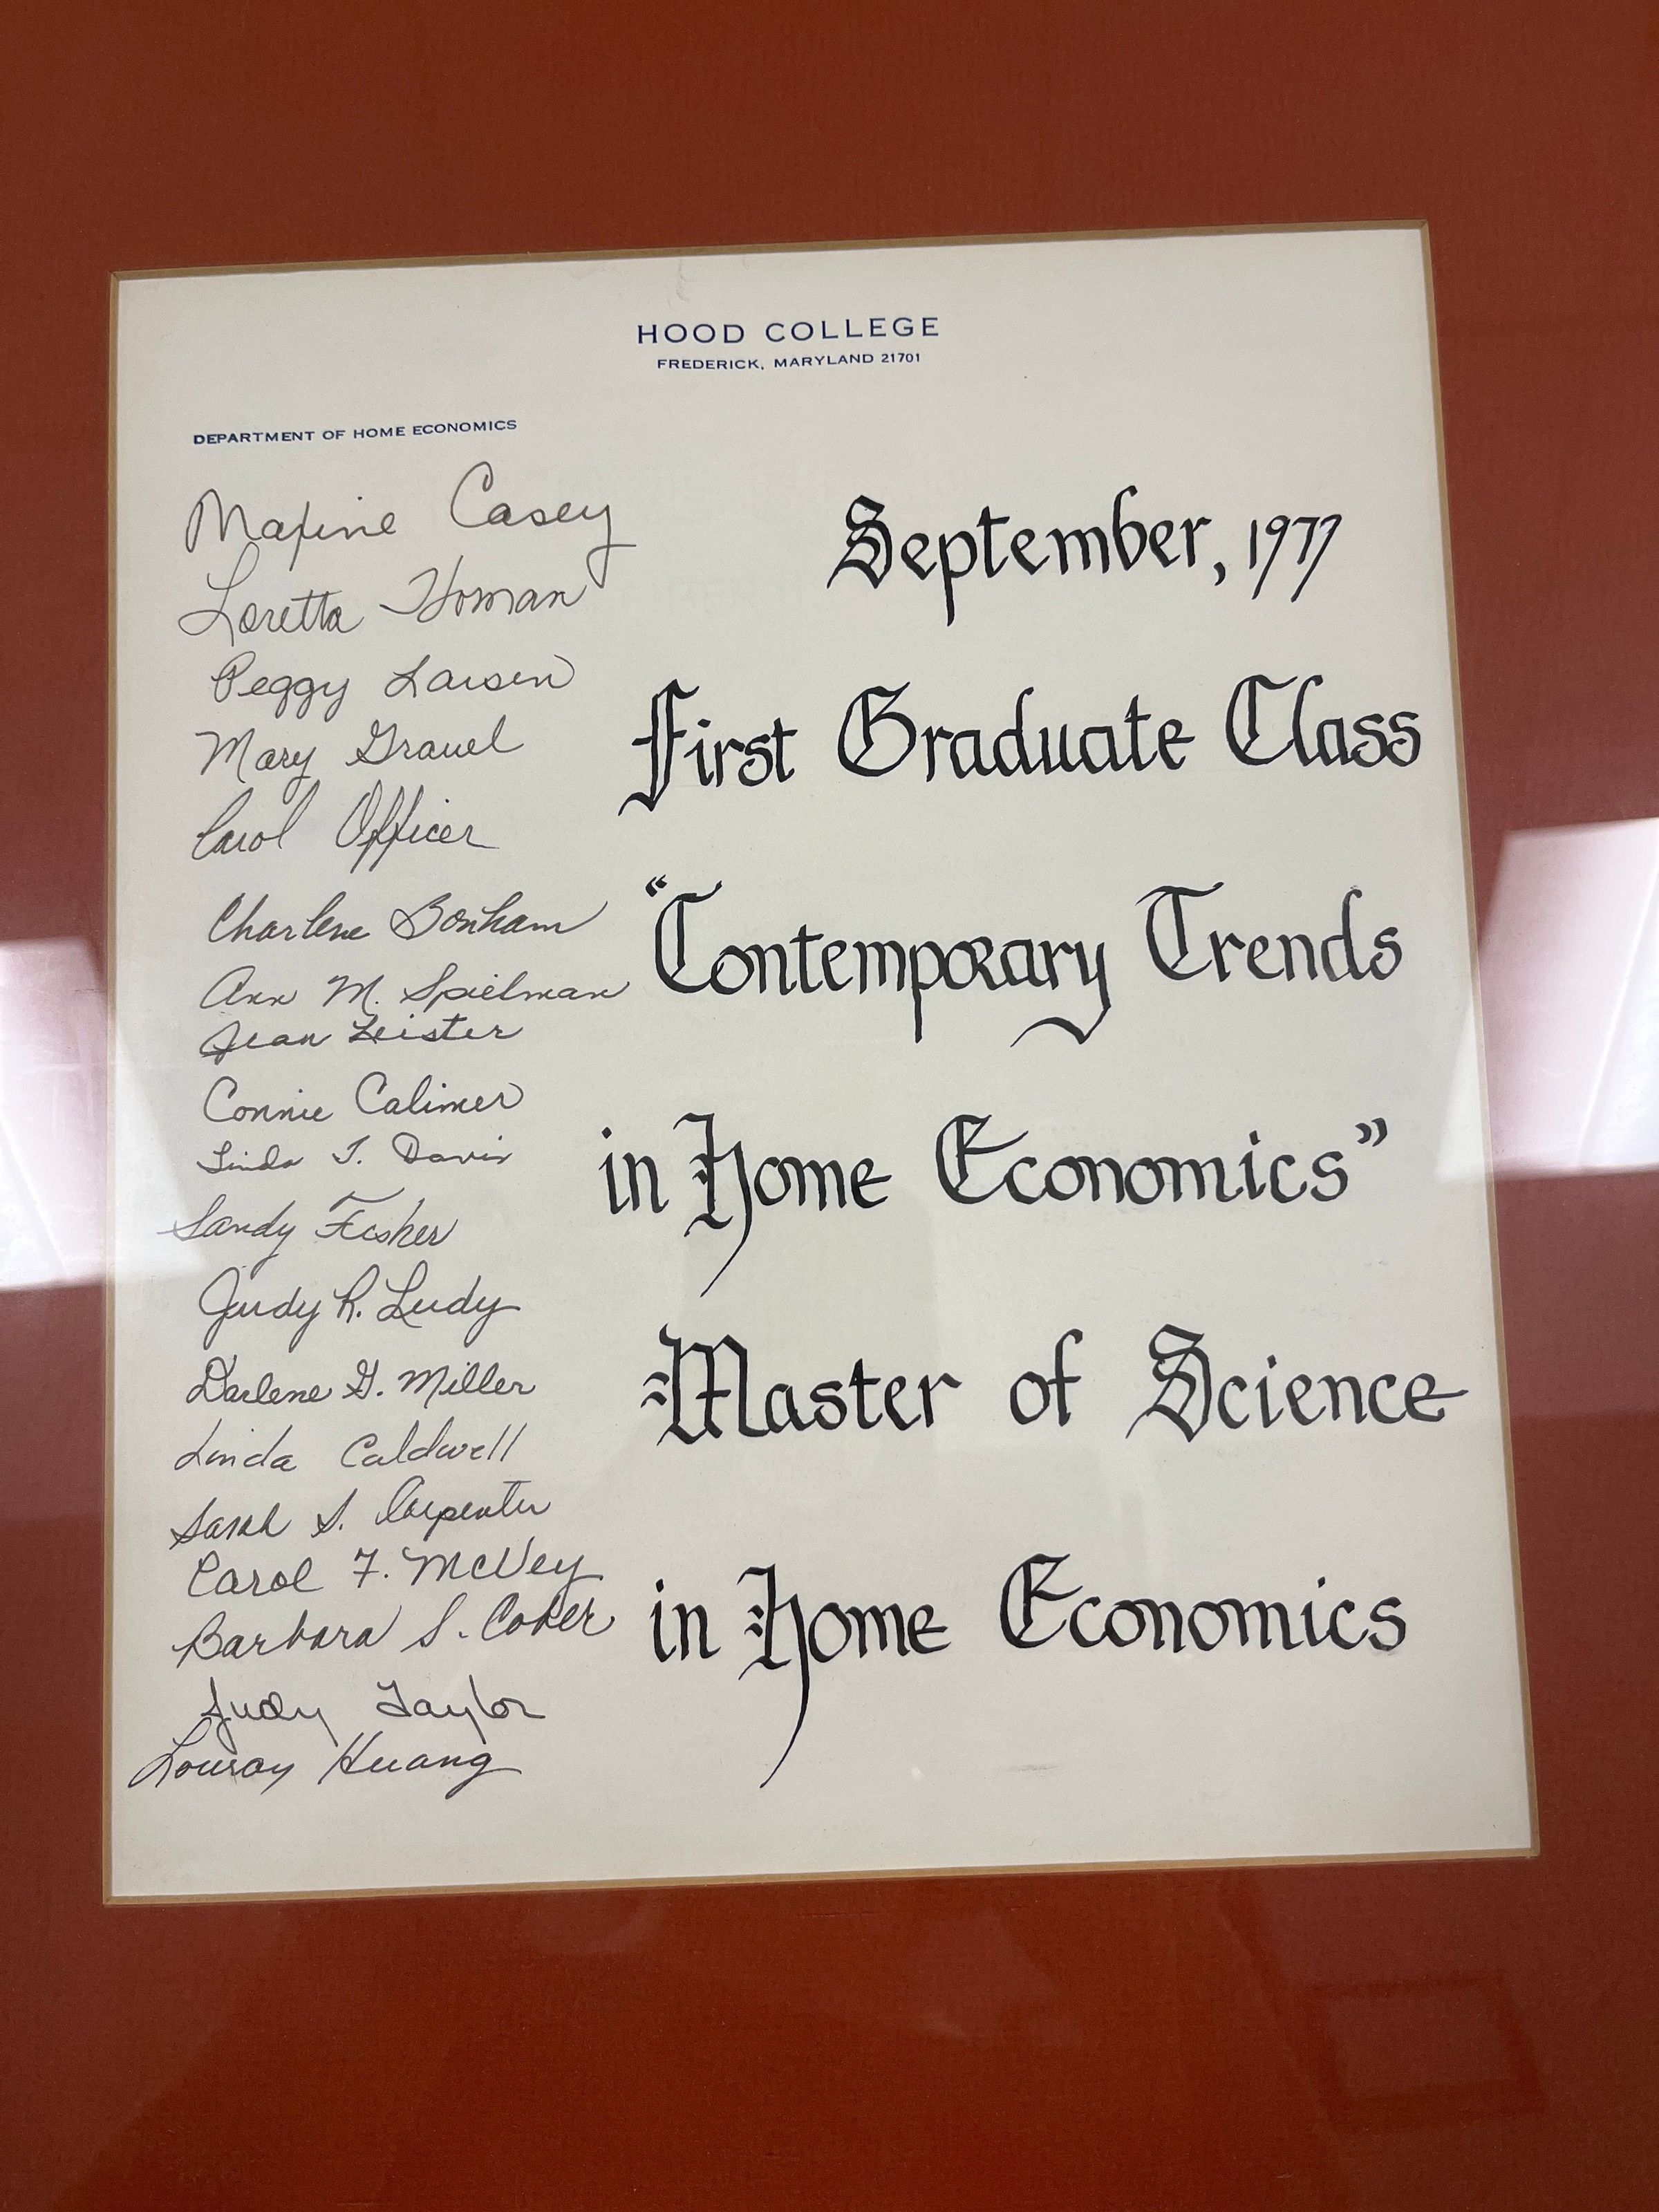 HOOD COLLEGE
FREDERICK, MARYLAND 21701
DEPARTMENT OF HOME ECONOMICS
Maxine Casey
Loretta Homan
Peggy Larsen
Mary Grauel
Carol Officer
Charlene Bonham
Ann M. Spielman
Jean Leister
Connie Calimer
Linda T. Davis
Sandy Fisher
Judy R. Ludy
Darlene G. Miller
Linda Caldwell
Sarah S. Carpenter
Carol F. McVey
Barbara S. Cober
Judy Taylor
Huang
September, 1977
First Graduate Class
“Contemporary Trends
in Home Economics”
Master of Science
in Home Economics